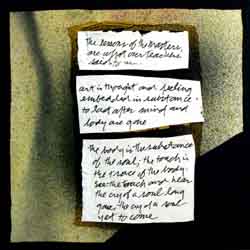 The lessons of the masters
are what our teachers
said to us.
art is thought and feeling
embedded in substance
to last after mind and
body are gone
the body is the substance
of the soul, the touch is
the trace of the body.
see the touch and hear
the cry of a soul long
gone, the cry of a soul
yet to come